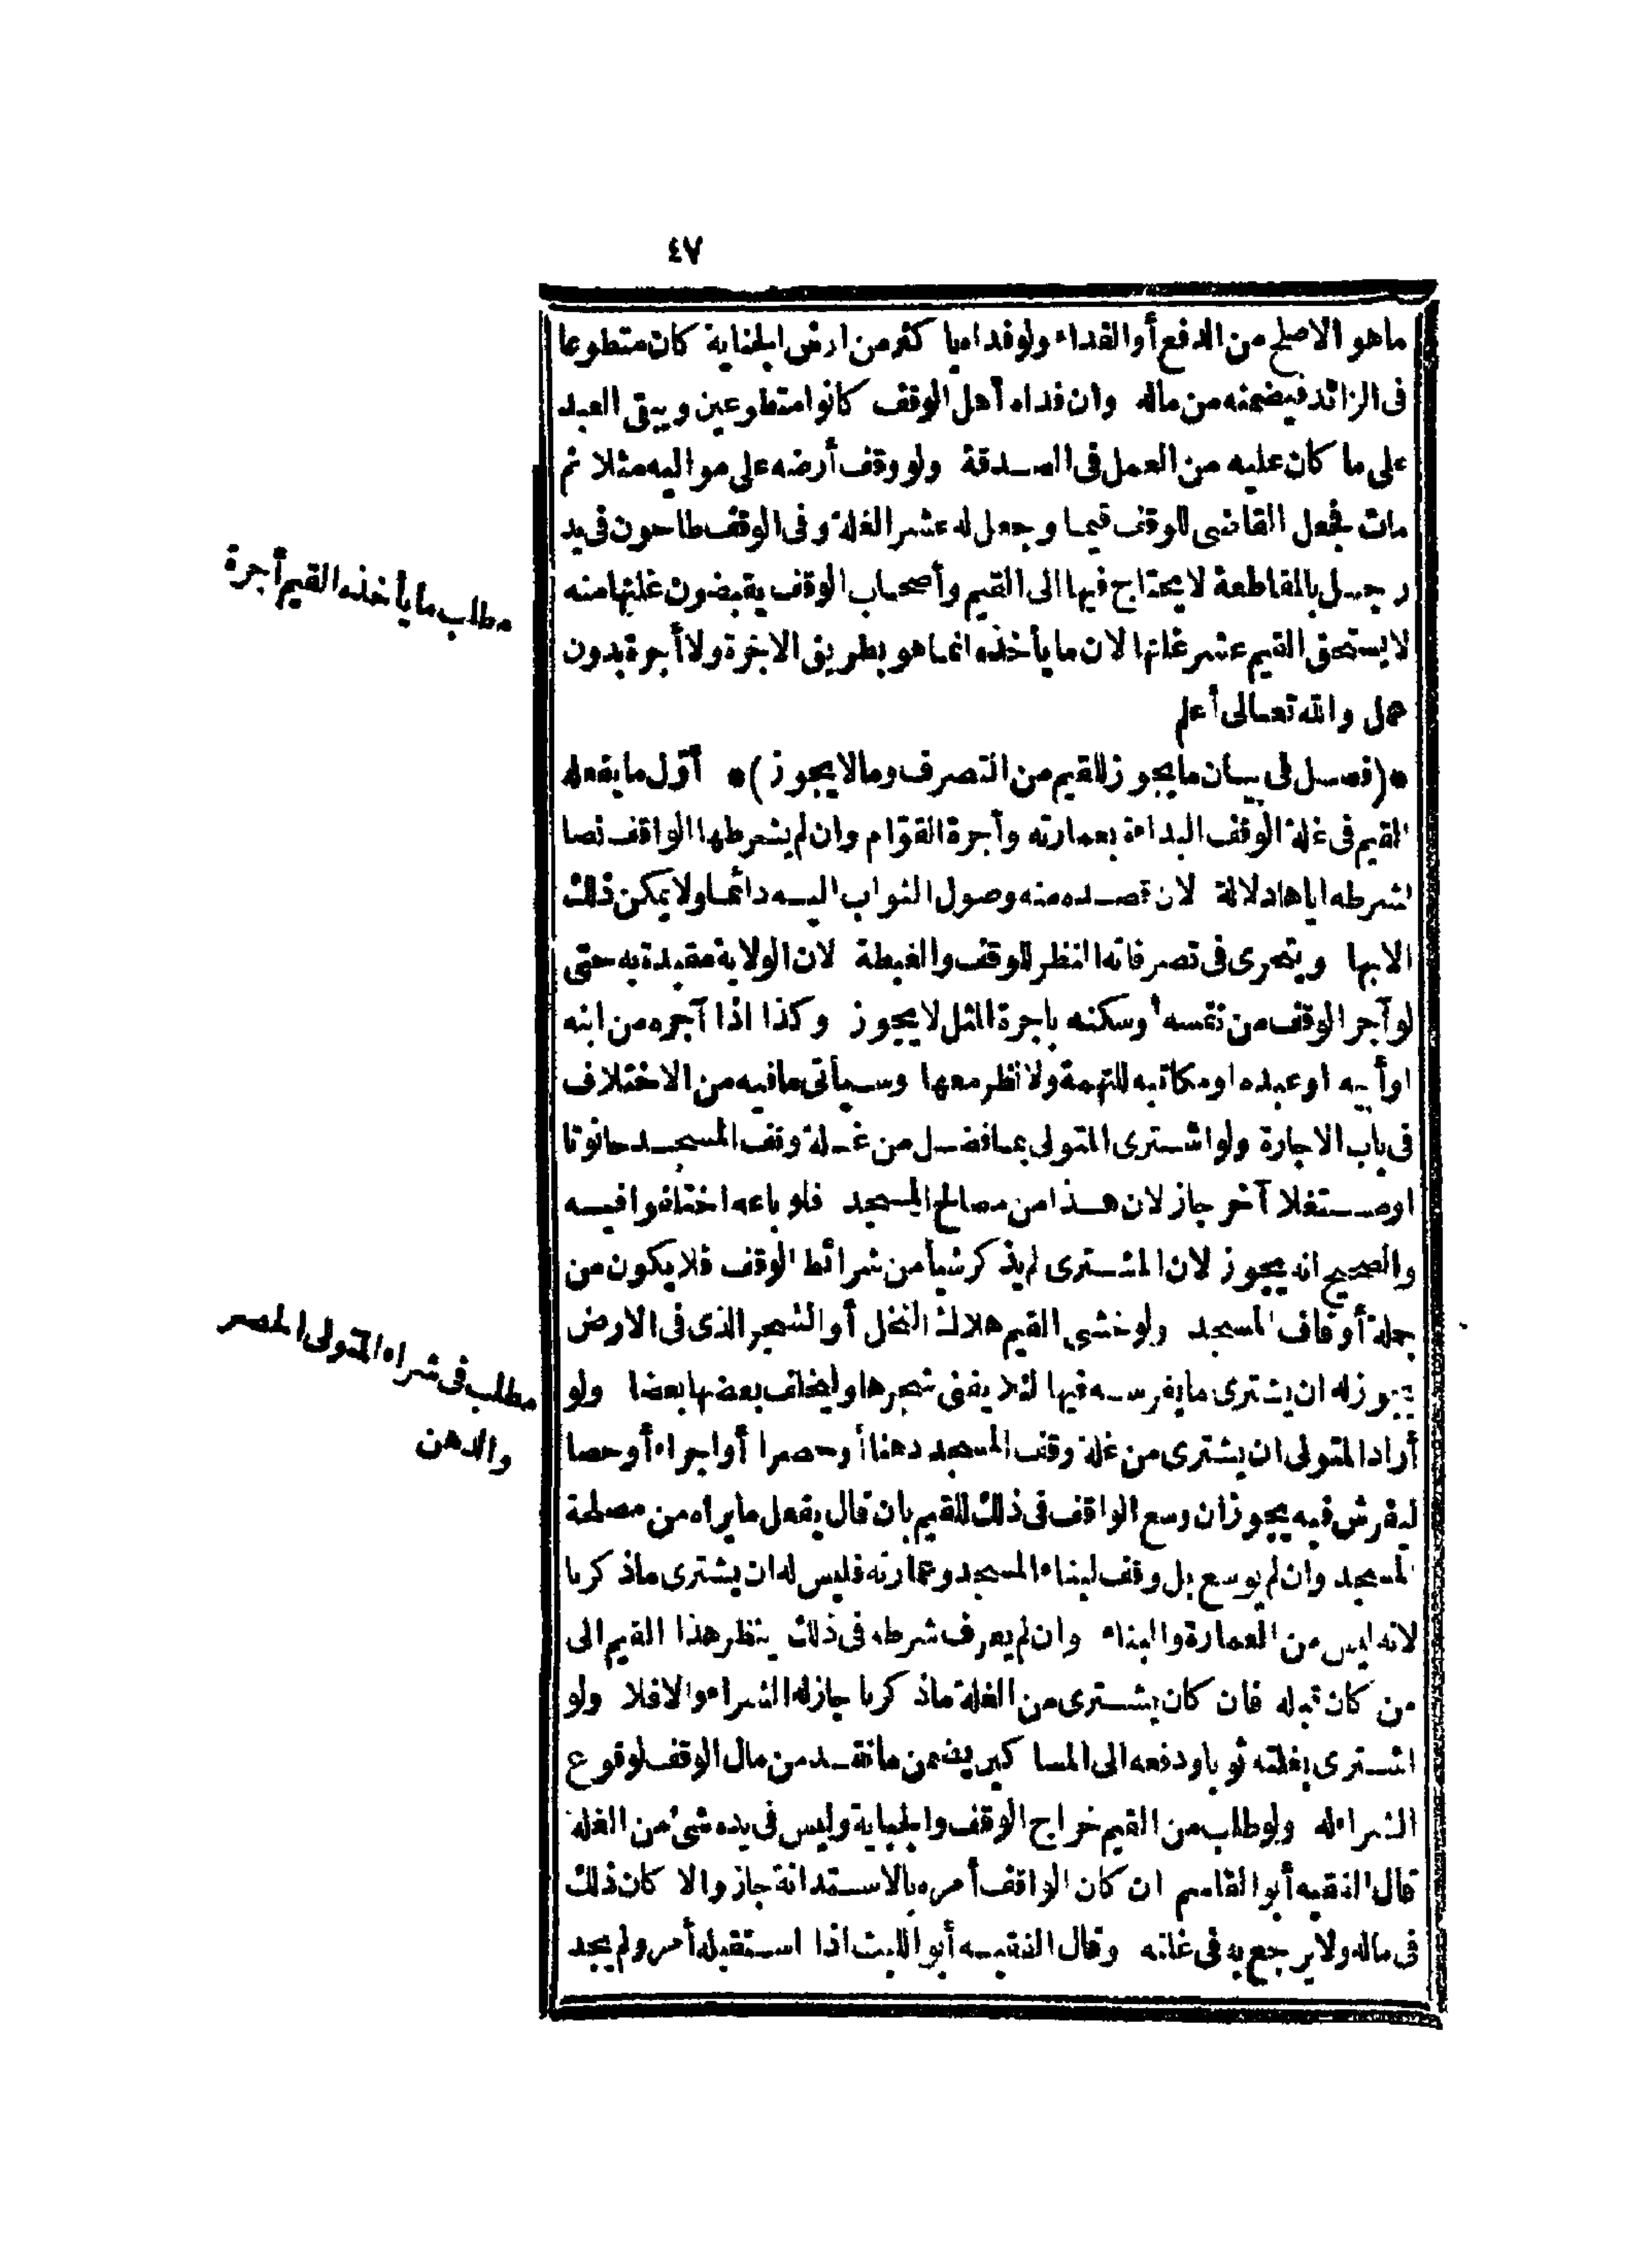 ٤٧
ما هو الاصلح من الدفع أو الفداء ولو فداه با كثر من ارش الجناية كان متطوعا
فى الزائد فيضمنه من ماله وان فداه أهل الوقف كانوا متطوعين ويبقى العبد
على ما كان عليه من العمل فى الصدقة ولو وقف أرضه على مواليه مثلا ثم
مات فجعل القاضى للوقف قيما وجعل له عشر الغلة وفى الوقف طاحون فى يد
رجل بالمقاطعة لا يحتاج فيها الى القيم وأصحاب الوقف يقبضون غلتها منه
لا يستحق القيم عشر غلتها لان ما يأخذه انما هو بطريق الاجرة ولا أجرة بدون
عمل والله تعالى أعلم
*(فصل فى بيان ما يجوز للقيم من التصرف وما لا يجوز)* أوّل ما يفعله
القيم فى غلة الوقف البداءة بعمارته وأجرة القوّام وان لم يشرطها الواقف نصا
لشرطه اياها دلالة لان قصده منه وصول الثواب اليه دائما ولا يمكن ذلك
الا بها ويتحرى فى تصرفاته النظر للوقف والغبطة لان الولاية مقيدة به حتى
لو آجر الوقف من نفسه أوسكنه باجرة المثل لا يجوز وكذا اذا آجره من ابنه
او أبيه او عبده او مكاتبه للتهمة ولا نظر معها وسيأتى ما فيه من الاختلاف
فى باب الاجارة ولو اشترى المتولى بما فضل من غلة وقف المسجد حانوتا
او مستغلا آخر جاز لان هذا من مصالح المسجد فلو باعه اختلفوا فيه
والصحيح انه يجوز لان المشترى لم يذكر شيأ من شرائط الوقف فلا يكون من
جملة أوقاف المسجد ولو خشى القيم هلاك النخل أو الشجر الذى فى الارض
يجوز له ان يشترى ما يغرسه فيها لئلا يفنى شجرها وليخلف بعضها بعضا ولو
أراد المتولى ان يشترى من غلة وقف المسجد دهنا أو حصرا أو اجراء أو حصا
ليفرش فيه يجوز ان وسع الواقف فى ذلك للقيم بان قال يفعل ما يراه من مصلحة
المسجد وان لم يوسع بل وقف لبناء المسجد وعمارته فليس له ان يشترى ماذ كرنا
لانه ليس من العمارة والبناء وان لم يعرف شرطه فى ذلك ينظر هذا القيم الى
من كان قبله فان كان يشترى من الغلة ماذ كرنا جاز له الشراء والا فلا ولو
اشترى بغلته ثوبا ودفعه الى المسا كين يضمن ما نقد من مال الوقف لوقوع
الشراء له ولو طلب من القيم خراج الوقف والجباية وليس فى يده شئ من الغلة
قال الفقيه أبو القاسم ان كان الواقف أمره بالاستدانة جاز والا كان ذلك
فى ماله ولا يرجع به فى غلته وقال الفقيه أبو الليث اذا استقبله أمر ولم يجد
مطلب ما يأخذه القيم أجرة
مطلب فى شراء المتولى الحصر
والدهن